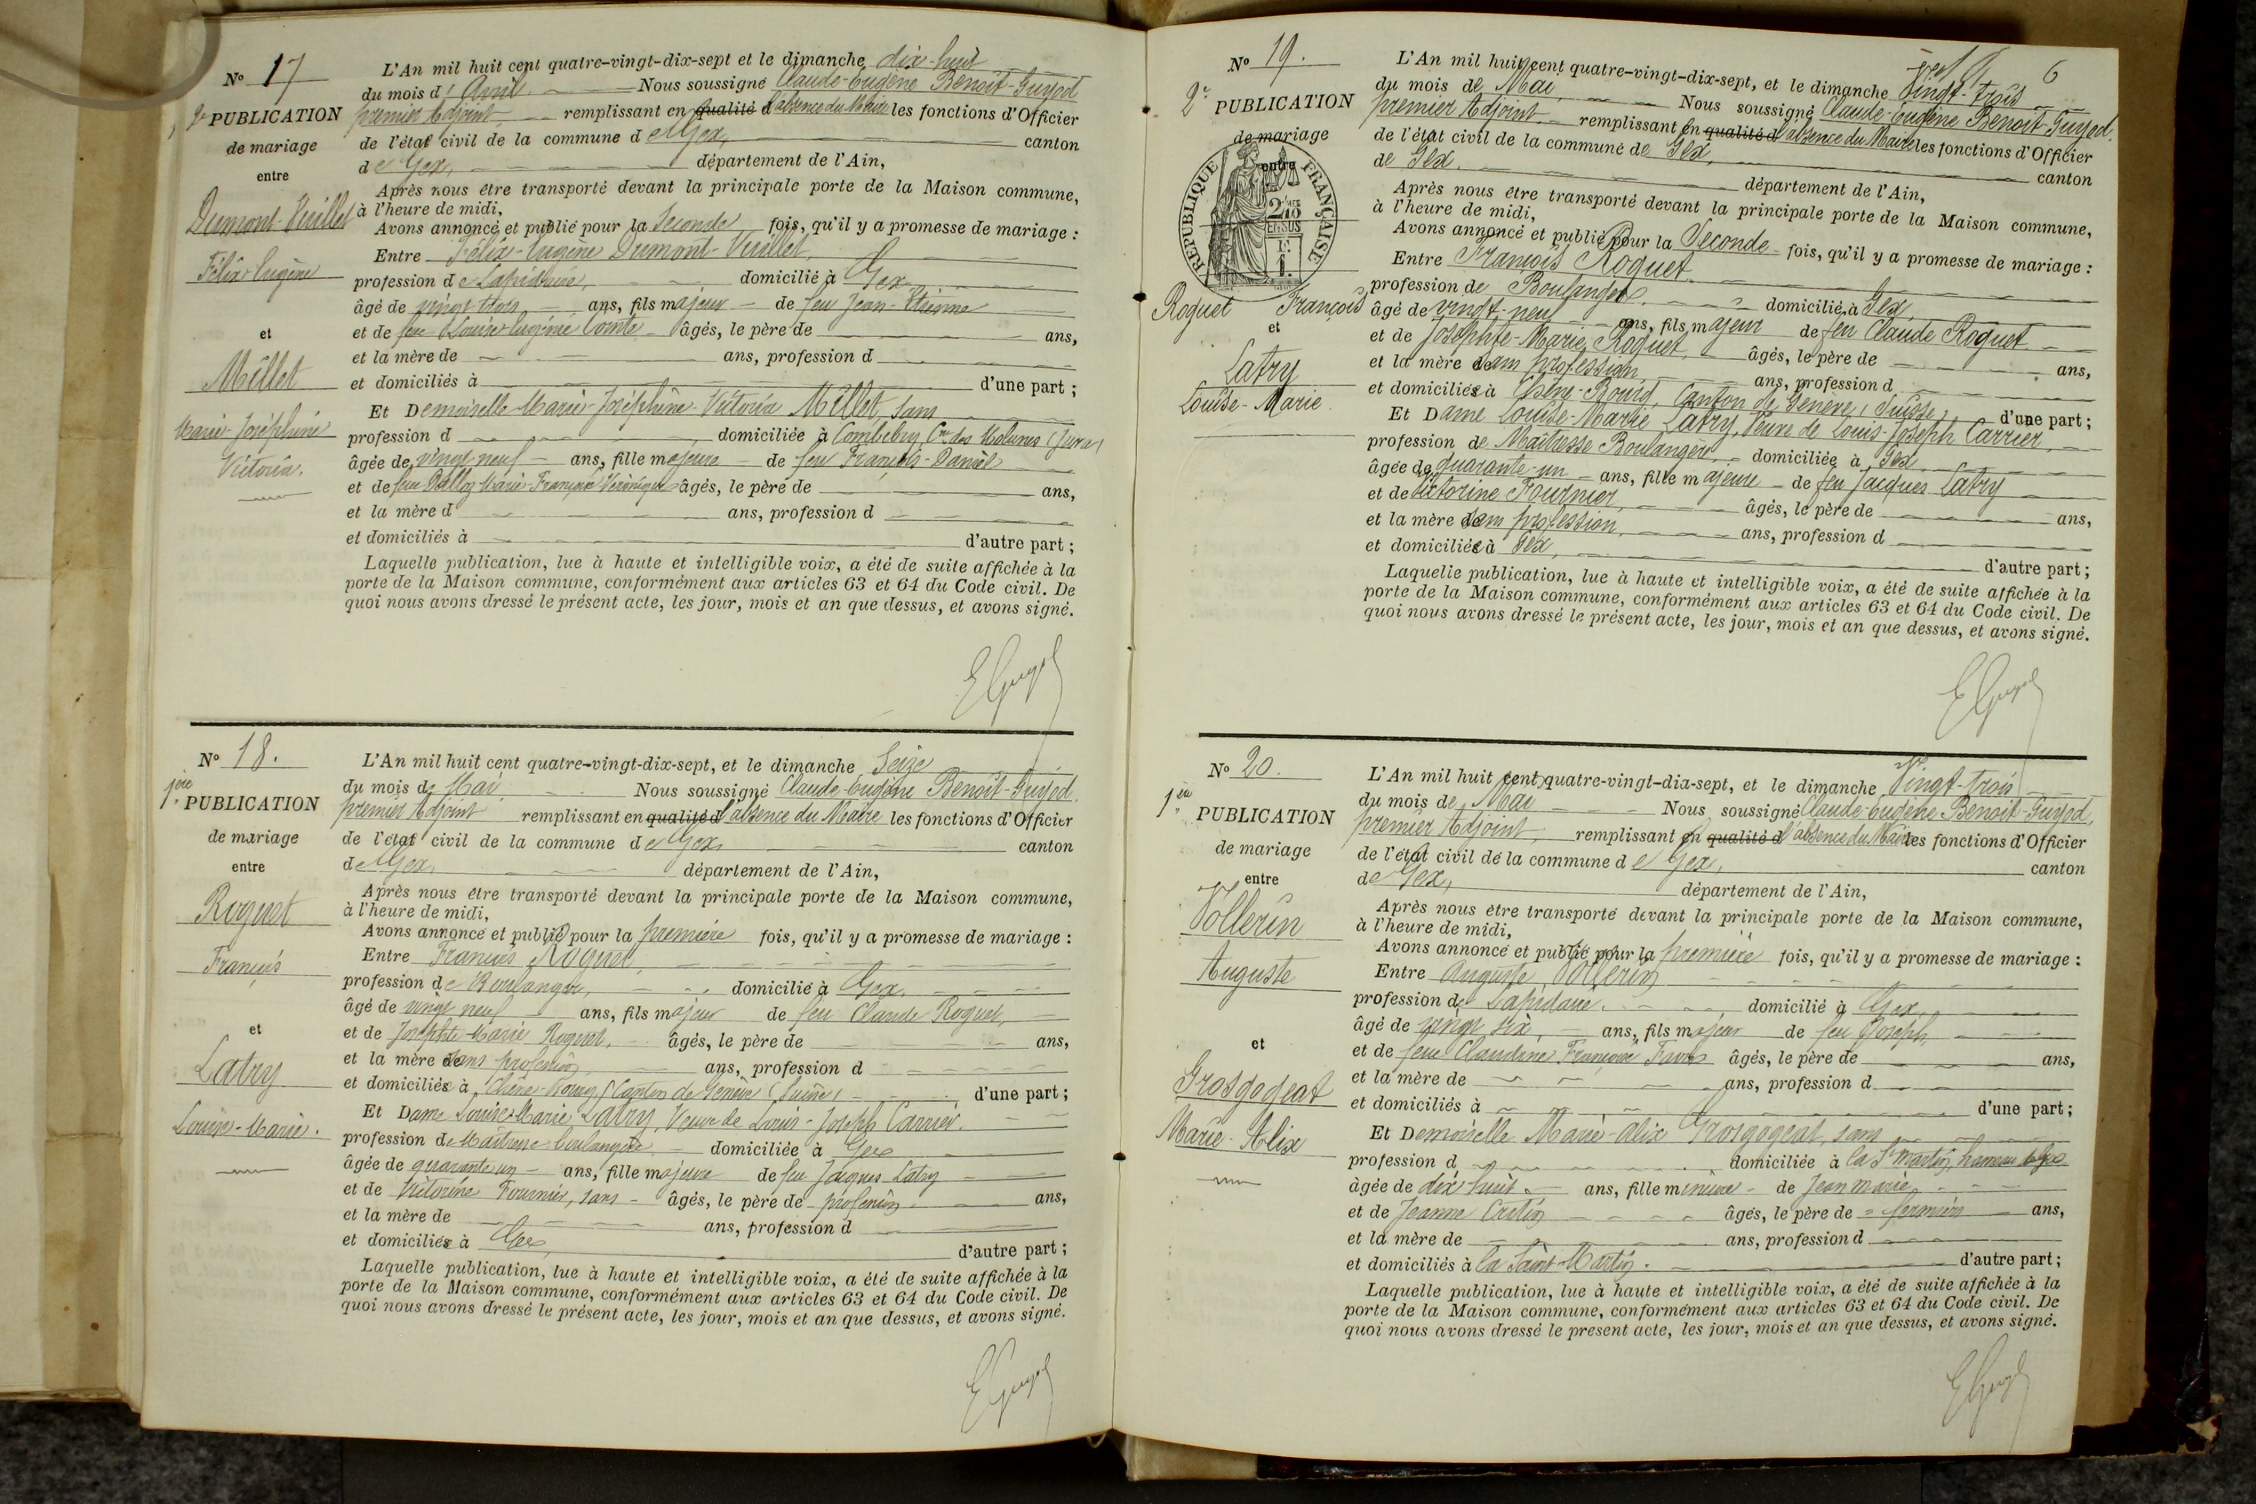 N° 17
2e PUBLICATION
de mariage
entre
Dumont-Vuillet
Félix-Eugène
et
Millet
Marie-Joséphine
Victoria.
L'An mil huit cent quatre-vingt-dix-sept et le dimanche dix-huit
du mois d'Avril Nous soussigné Claude-Eugène Benoit-Guyod
premier Adjoint, remplissant en qualité d l'absence du Maire les fonctions d'Officier
de l'état civil de la commune de Gex, canton
de Gex, département de l'Ain,
Après nous être transporté devant la principale porte de la Maison commune,
à l'heure de midi,
Avons annoncé et publié pour la Seconde fois, qu'il y a promesse de mariage :
Entre Félix-Eugène Dumont-Vuillet,
profession de Lapidaire, domicilié à Gex
âgé de vingt trois ans, fils majeur de feu Jean-Etienne
et de feue Louise Eugénie Comte âgés, le père de ans,
et la mère de ans, profession d
et domiciliés à d'une part ;
Et Demoiselle Marie-Joséphine-Victoria Millet, sans
profession d , domiciliée à Cne des Molunes (Jura)
âgée de vingt neuf ans, fille majeure de feu François-Daniel
et de feue Dalloz Marie-Françoise Véronique âgés, le père de ans,
et la mère d ans, profession d
et domiciliés à d'autre part ;
Laquelle publication, lue à haute et intelligible voix, a été de suite affichée à la
porte de la Maison commune, conformément aux articles 63 et 64 du Code civil. De
quoi nous avons dressé le présent acte, les jour, mois et an que dessus, et avons signé.
EGuyod
N° 18.
1ère PUBLICATION
de mariage
entre
Roguet
François
et
Latry
Louise-Marie.
L'An mil huit cent quatre-vingt-dix-sept, et le dimanche Seize
du mois de Mai Nous soussigné Claude-Eugène Benoit-Guyod,
premier Adjoint remplissant en qualité d l'absence du Maire les fonctions d'Officier
de l'état civil de la commune de Gex, canton
de Gex, département de l'Ain,
Après nous être transporté devant la principale porte de la Maison commune,
à l'heure de midi,
Avons annoncé et publié pour la première fois, qu'il y a promesse de mariage :
Entre François Roguet,
profession de Boulanger, domicilié à Gex.
âgé de vingt neuf ans, fils majeur de feu Claude Roguet,
et de Josephte-Marie Roguet, âgés, le père de ans,
et la mère de sans profession, ans, profession d
et domiciliés à Chêne-Bourg, Canton de Genève (Suisse) d'une part ;
Et Dame Louise-Marie Latry, Veuve de Louis-Joseph Carrier.
profession de Maîtresse boulangère domiciliée à Gex
âgée de quarante un ans, fille majeure de feu Jacques Latry
et de Victorine Fournier, sans âgés, le père de profession ans,
et la mère de ans, profession d
et domiciliés à Gex, d'autre part ;
Laquelle publication, lue à haute et intelligible voix, a été de suite affichée à la
porte de la Maison commune, conformément aux articles 63 et 64 du Code civil. De
quoi nous avons dressé le présent acte, les jour, mois et an que dessus, et avons signé.
EGuyod
6
N° 19.
2e PUBLICATION
de mariage
entre
RÉPUBLIQUE FRANÇAISE
Roguet François
et
Latry
Louise-Marie.
L'An mil huit cent quatre-vingt-dix-sept, et le dimanche Vingt-trois
du mois de Mai, Nous soussigné Claude-Eugène Benoit-Guyod,
premier Adjoint, remplissant en qualité d l'absence du Maire les fonctions d'Officier
de l'état civil de la commune de Gex, canton
de Gex. département de l'Ain,
Après nous être transporté devant la principale porte de la Maison commune,
à l'heure de midi,
Avons annoncé et publié pour la Seconde fois, qu'il y a promesse de mariage :
Entre François Roguet
profession de Boulanger. domicilié à Gex,
âgé de vingt-neuf ans, fils majeur de feu Claude Roguet
et de Josephte-Marie Roguet, âgés, le père de ans,
et la mère de sans profession ans, profession d
et domiciliés à Chêne-Bourg, Canton de Genève, (Suisse) d'une part ;
Et Dame Louise-Marie Latry, Veuve de Louis-Joseph Carrier,
profession de Maîtresse Boulangère, domiciliée à Gex
âgée de quarante-un ans, fille majeure de feu Jacques Latry
et de Victorine Fournier, âgés, le père de ans,
et la mère de sans profession, ans, profession d
et domiciliés à Gex, d'autre part ;
Laquelle publication, lue à haute et intelligible voix, a été de suite affichée à la
porte de la Maison commune, conformément aux articles 63 et 64 du Code civil. De
quoi nous avons dressé le présent acte, les jour, mois et an que dessus, et avons signé.
EGuyod
N° 20.
1ère PUBLICATION
de mariage
entre
Vollerin
Auguste
et
Grosgogeat
Marie-Alix
L'An mil huit cent quatre-vingt-dix-sept, et le dimanche Vingt-trois
du mois de Mai Nous soussigné Claude-Eugène Benoit-Guyod,
premier Adjoint, remplissant en qualité d l'absence du Maire les fonctions d'Officier
de l'état civil de la commune de Gex, canton
de Gex, département de l'Ain,
Après nous être transporté devant la principale porte de la Maison commune,
à l'heure de midi,
Avons annoncé et publié pour la première fois, qu'il y a promesse de mariage :
Entre Auguste Vollerin
profession de Lapidaire. domicilié à Gex,
âgé de vingt six, ans, fils majeur de feu Joseph
et de feue Claudine Françoise âgés, le père de ans,
et la mère de ans, profession d
et domiciliés à d'une part ;
Et Demoiselle Marie-Alix Grosgogeat, sans
profession d , domiciliée à la St Martin, hameau de Gex
âgée de dix huit ans, fille mineure de Jean Marie
et de Jeanne âgés, le père de fermiers ans,
et la mère de ans, profession d
et domiciliés à la Saint-Martin. d'autre part ;
Laquelle publication, lue à haute et intelligible voix, a été de suite affichée à la
porte de la Maison commune, conformément aux articles 63 et 64 du Code civil. De
quoi nous avons dressé le présent acte, les jour, mois et an que dessus, et avons signé.
EGuyod